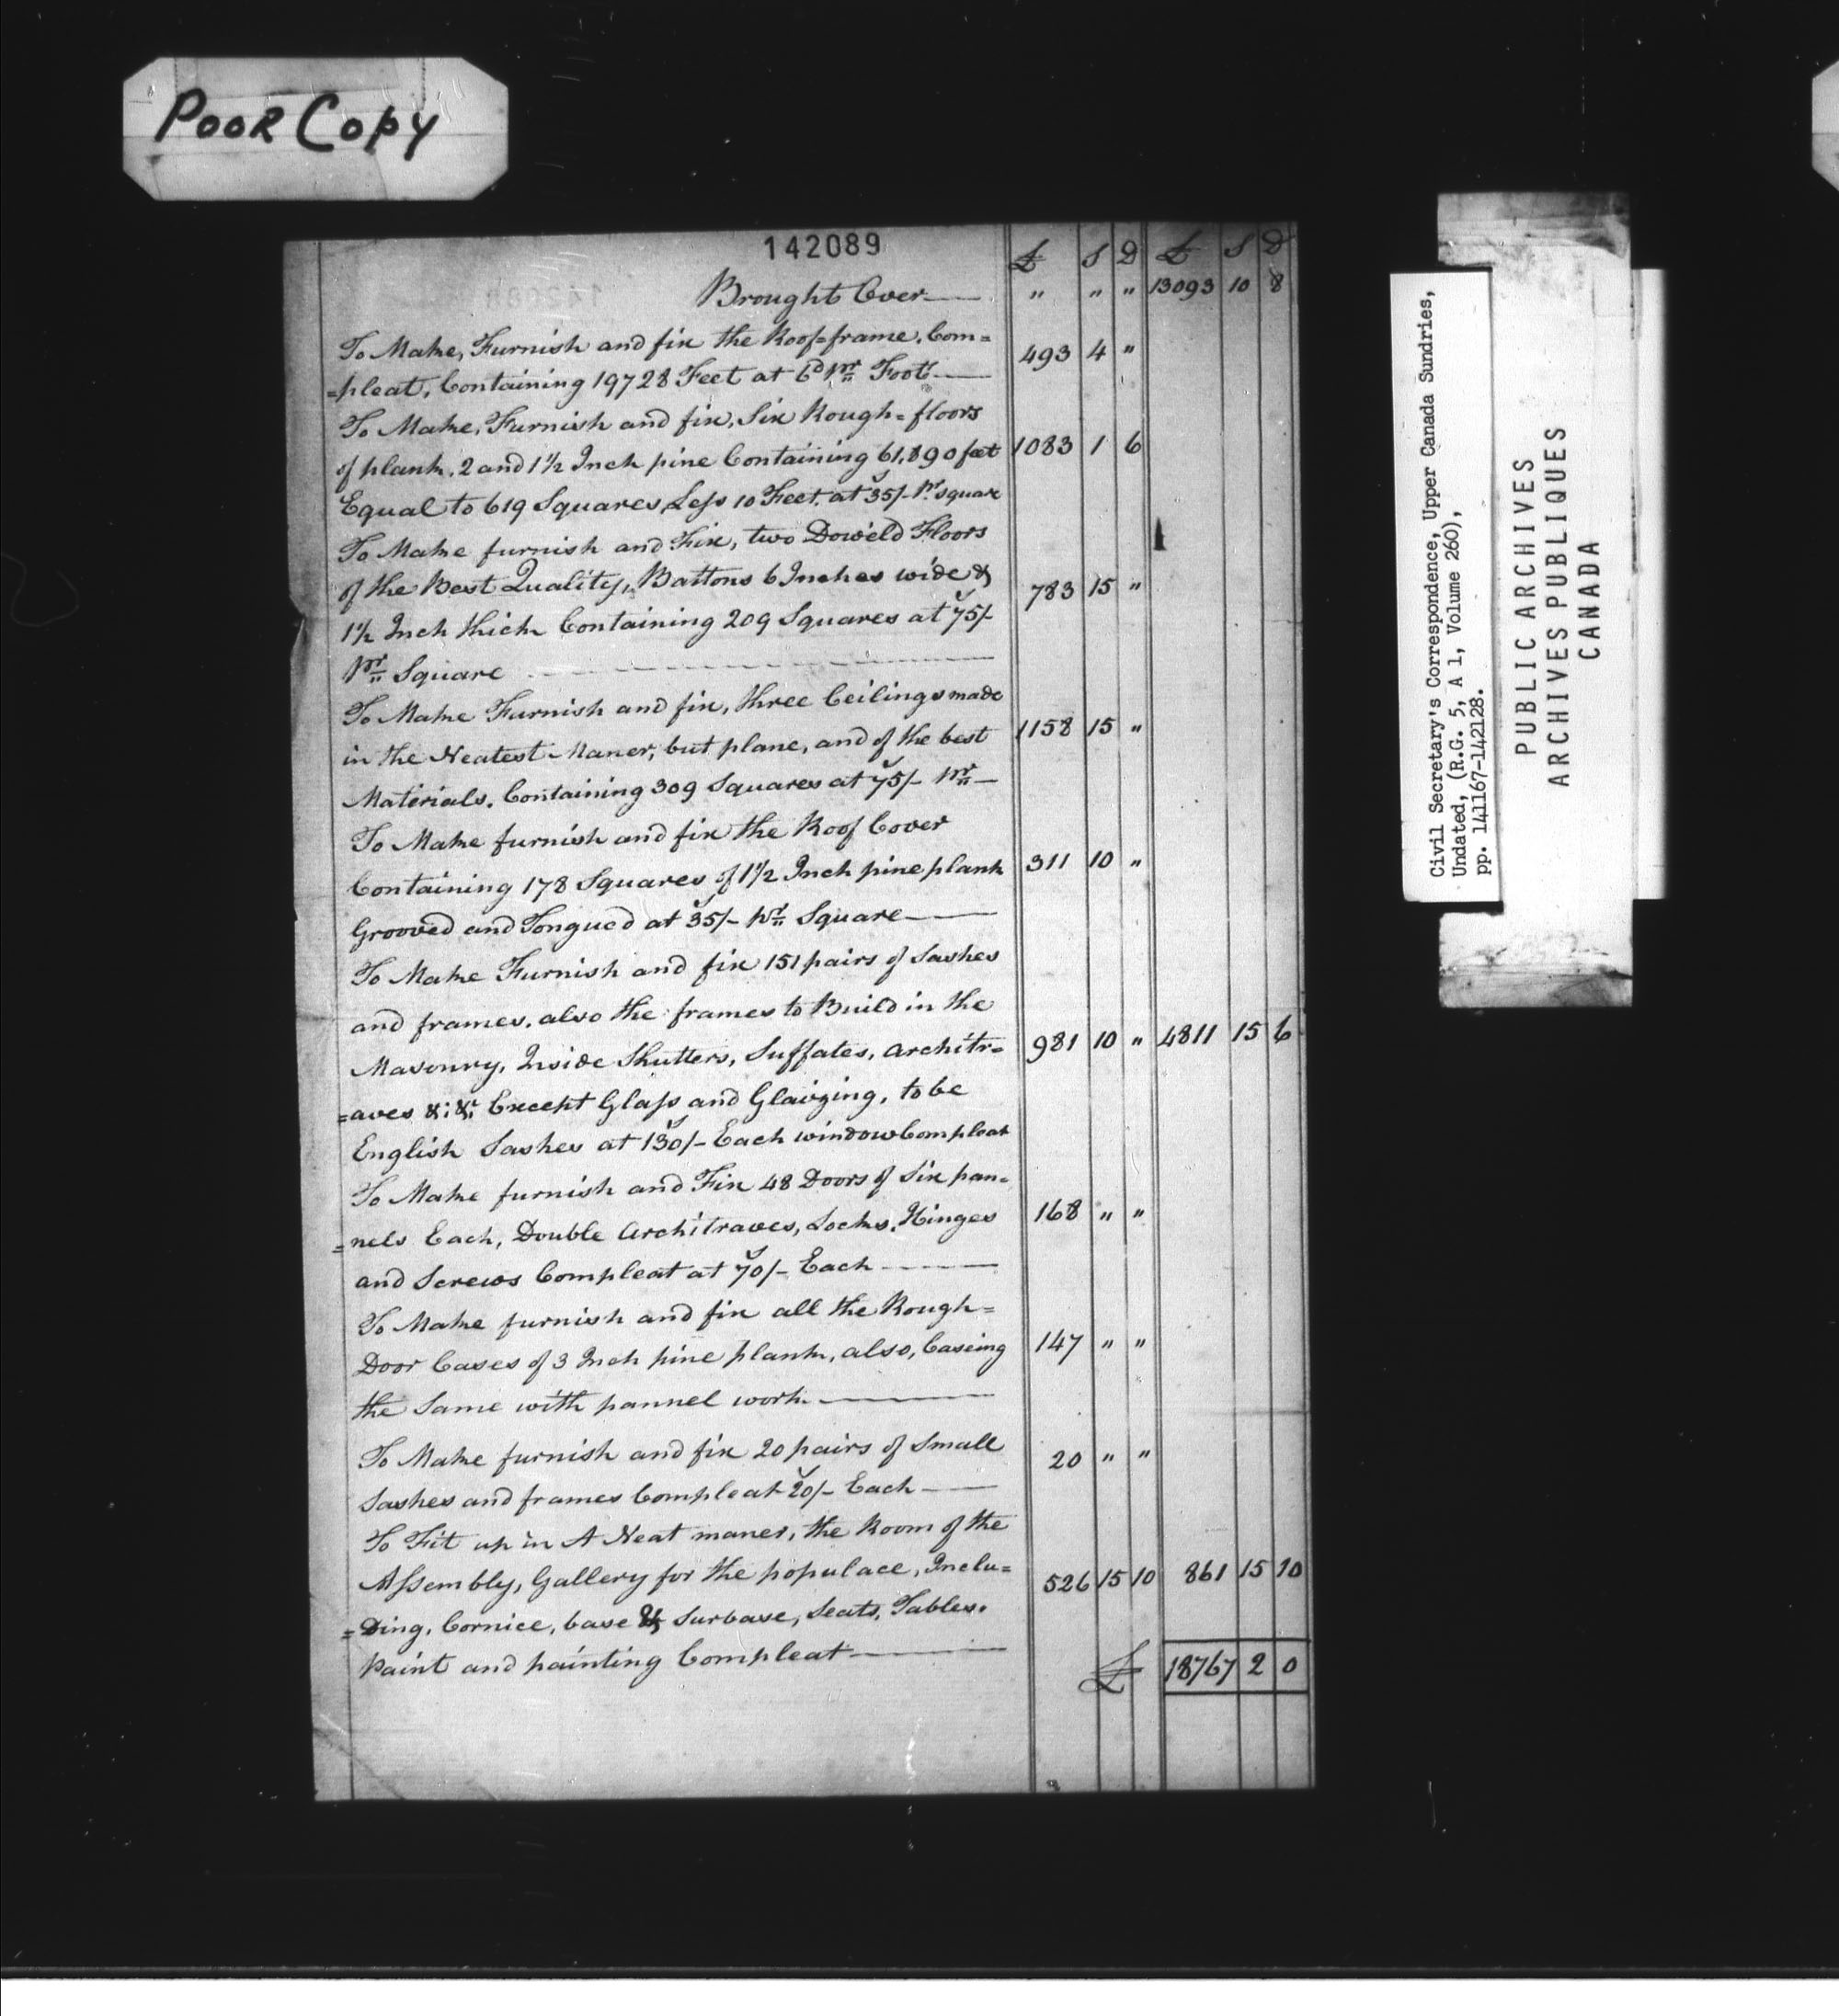 Poor Copy
142089
£ S D £ S D
Brought Over — " " " 13093 10 8
To Make, Furnish and fix the Roof=frame, Com=
=pleat, Containing 19728 Feet at 6d pr Foot — 493 4 "
To Make, Furnish and fix, Six Rough=floors
of plank, 2 and 1½ Inch pine Containing 61,890 feet 1083 1 6
Equal to 619 Squares Less 10 Feet. at 35/- pr square
To Make furnish and Fix, two Dowel'd Floors
of the Best Quality, Battons 6 Inches wide &
1½ Inch thick Containing 209 Squares at 75/- 783 15 "
pr Square
To Make Furnish and fix, three Ceilings made
in the Neatest Maner, but plane, and of the best 1158 15 "
Materials. Containing 309 Squares at 75/- pr —
To Make furnish and fix the Roof Cover
Containing 178 Squares of 1½ Inch pine plank 311 10 "
Grooved and Tongued at 35/- pr Square —
To Make Furnish and fix 151 pairs of Sashes
and frames, also the frames to Build in the
Masonry, Inside Shutters, Suffates, Architr= 981 10 " 4811 15 6
=aves &c &c Except Glass and Glaizing, to be
English Sashes at 130/- Each window Compleat
To Make furnish and Fix 48 Doors of Six pan=
=nels Each, Double Architraves, Locks, Hinges 168 " "
and Screws Compleat at 70/- Each —
To Make furnish and fix all the Rough=
Door Cases of 3 Inch pine plank, also, Caseing 147 " "
the Same with pannel work —
To Make furnish and fix 20 pairs of Small
Sashes and frames Compleat 20/- Each — 20 " "
To Fit up in A Neat maner, the Room of the
Assembly, Gallery for the populace, Inclu= 526 15 10 861 15 10
=Ding, Cornice, base & Surbase, Seats, Tables.
Paint and painting Compleat —
£ 18767 2 0
Civil Secretary's Correspondence, Upper Canada Sundries,
Undated, (R.G. 5, A 1, Volume 260),
pp. 141167-142128.
PUBLIC ARCHIVES
ARCHIVES PUBLIQUES
CANADA